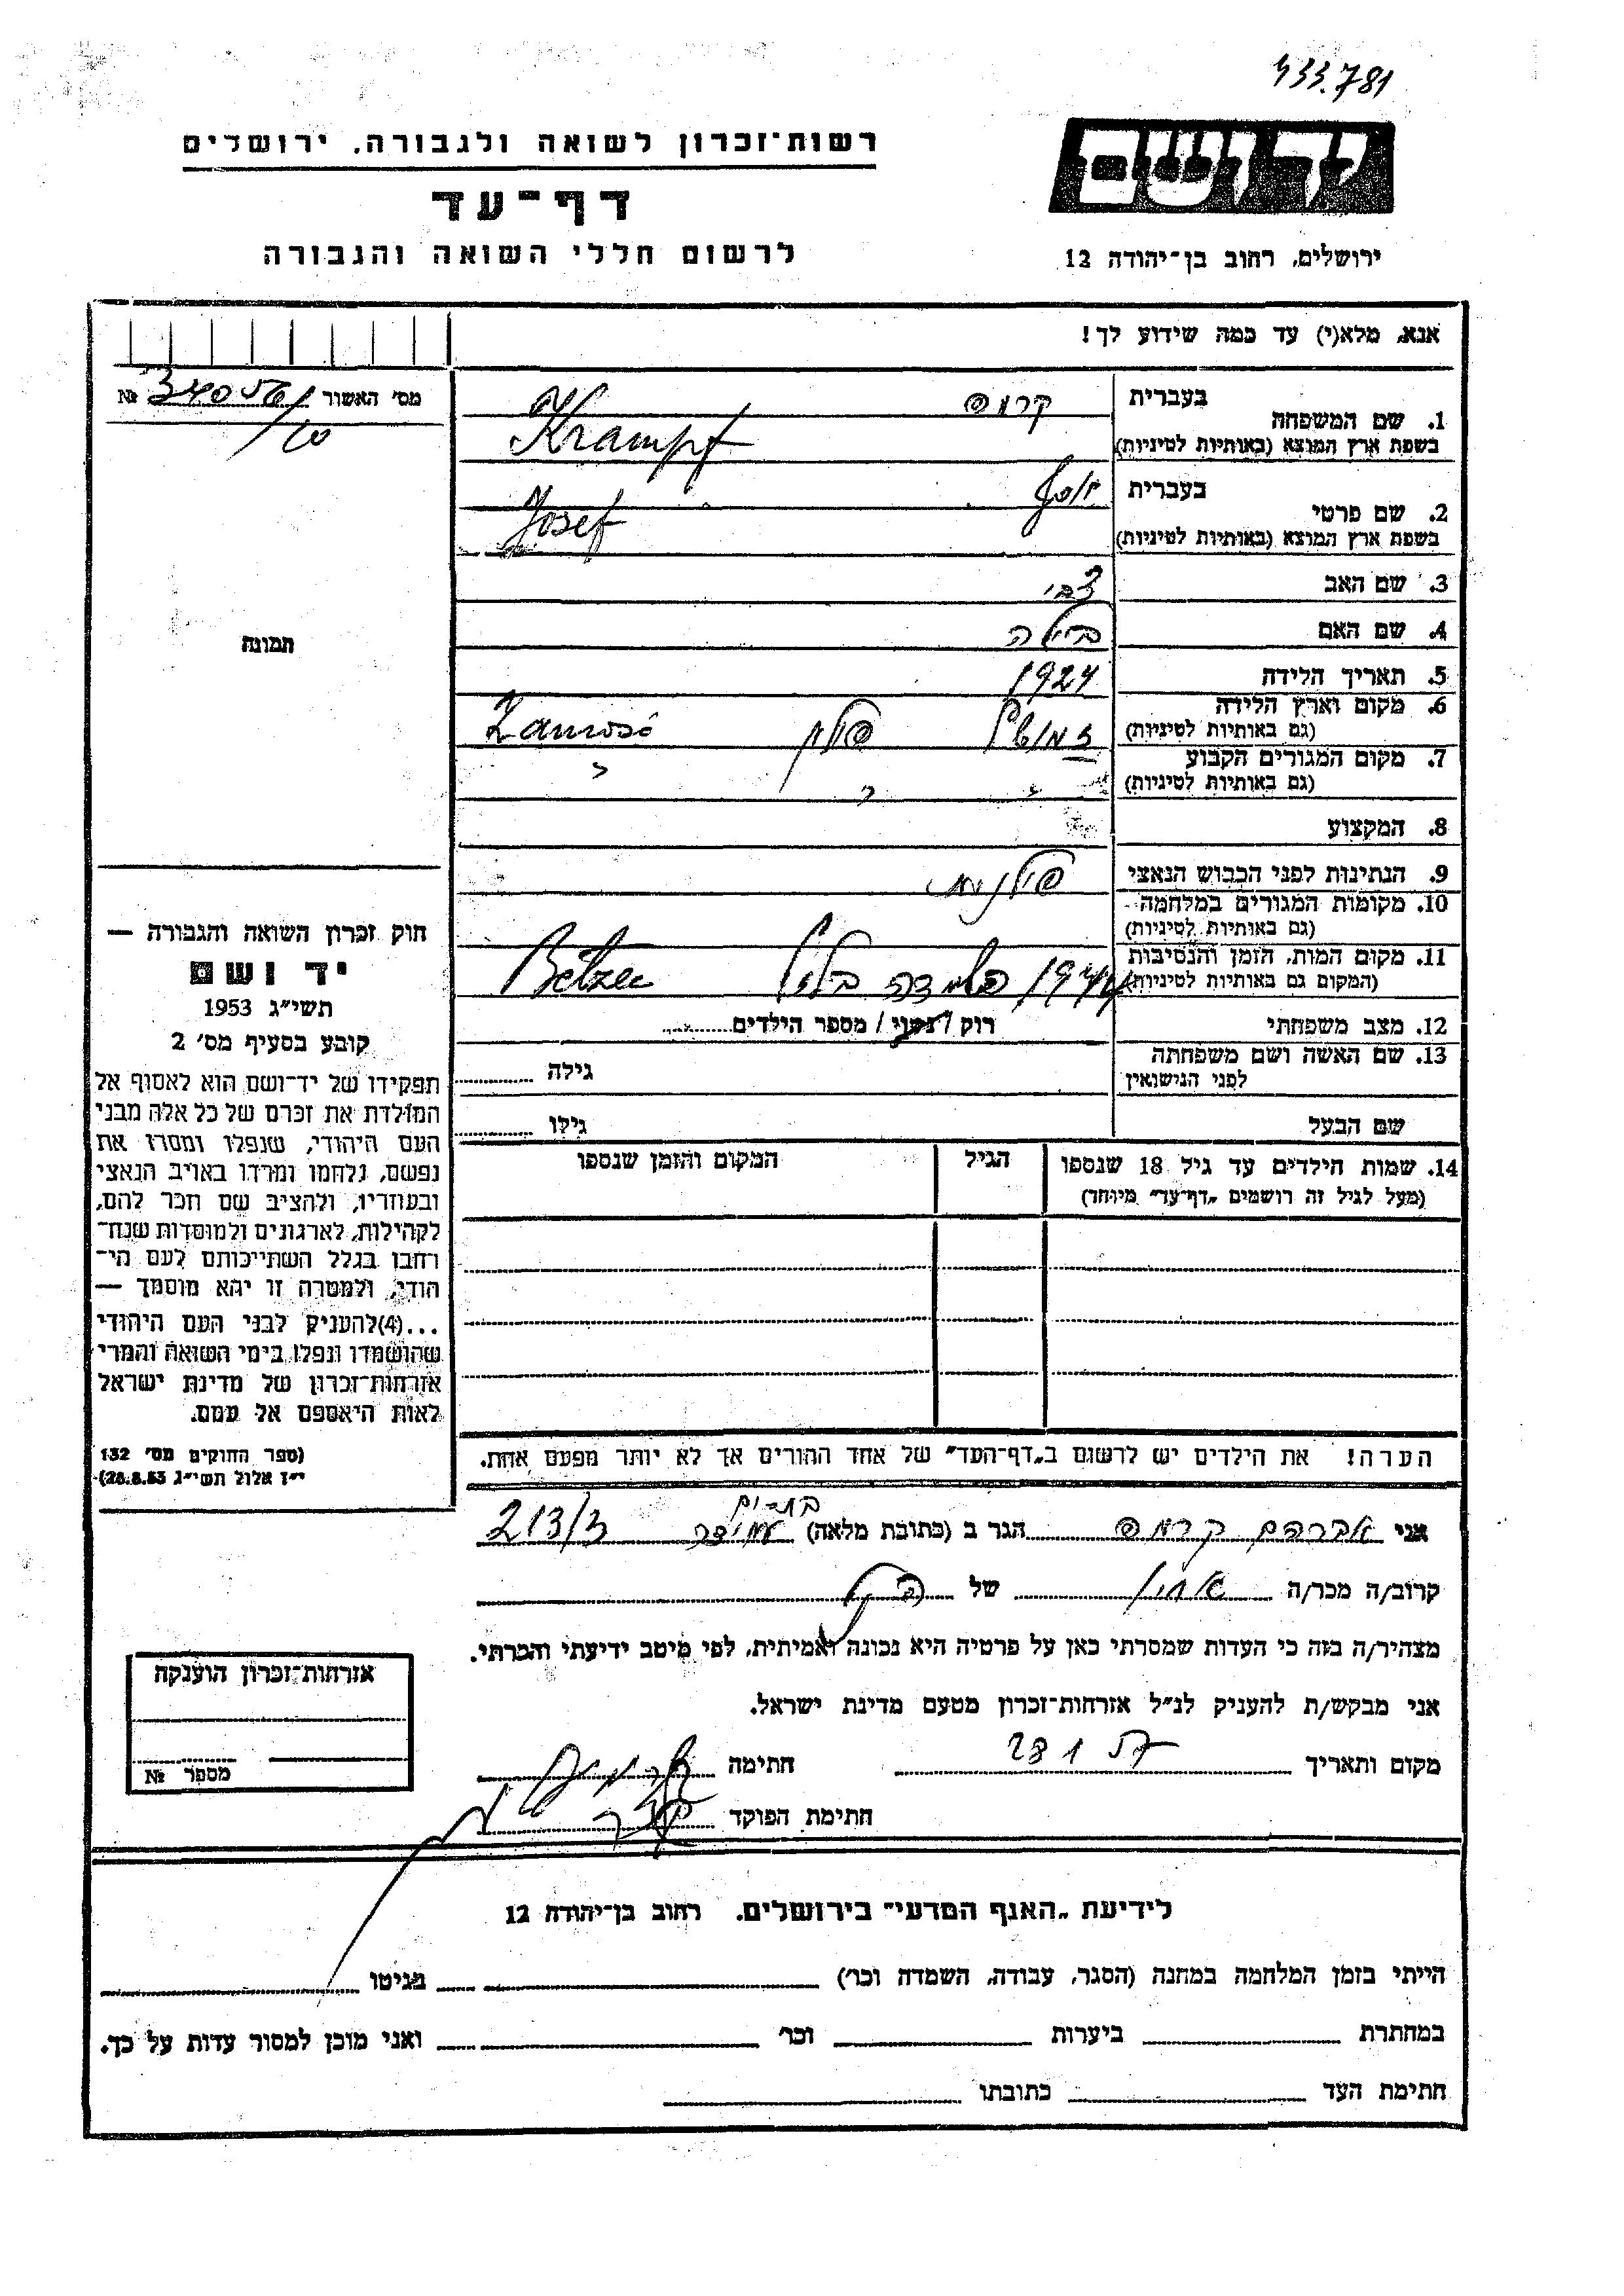 433.781
יד ושם
ירושלים, רחוב בן־יהודה 12
רשות־זכרון לשואה ולגבורה, ירושלים
דף־עד
לרשום חללי השואה והגבורה
אנא, מלא(י) עד כמה שידוע לך!
מס' האשור 34056 №
10
תמונה
1. שם המשפחה
בעברית קרמפ
בשפת ארץ המוצא (באותיות לטיניות) Krampf
2. שם פרטי
בעברית יוסף
בשפת ארץ המוצא (באותיות לטיניות) Josef
3. שם האב צבי
4. שם האם ביילה
5. תאריך הלידה 1924
6. מקום וארץ הלידה
(גם באותיות לטיניות) זמושץ פולין Zamość
7. מקום המגורים הקבוע
(גם באותיות לטיניות) " " "
8. המקצוע
9. הנתינות לפני הכבוש הנאצי פולנית
10. מקומות המגורים במלחמה
(גם באותיות לטיניות)
11. מקום המות, הזמן והנסיבות
(המקום גם באותיות לטיניות) בלזץ Bełzec
12. מצב משפחתי רוק / נשוי / מספר הילדים
13. שם האשה ושם משפחתה
לפני הנישואין גילה
שם הבעל גילו
14. שמות הילדים עד גיל 18 שנספו
(מעל לגיל זה רושמים „דף־עד" מיוחד)
הגיל
המקום והזמן שנספו
הערה! את הילדים יש לרשום ב„דף־העד" של אחד ההורים אך לא יותר מפעם אחת.
חוק זכרון השואה והגבורה —
יד ושם
תשי"ג 1953
קובע בסעיף מס' 2
תפקידו של יד־ושם הוא לאסוף אל
המולדת את זכרם של כל אלה מבני
העם היהודי, שנפלו ומסרו את
נפשם, נלחמו ומרדו באויב הנאצי
ובעוזריו, ולהציב שם וזכר להם,
לקהילות, לארגונים ולמוסדות שנח־
רחבו בגלל השתייכותם לעם הי־
הודי, ולמטרה זו יהא מוסמך —
...(4)להעניק לבני העם היהודי
שהושמדו ונפלו בימי השואה והמרי
אזרחות־זכרון של מדינת ישראל
לאות היאספם אל עמם.
(ספר החוקים מס' 132
י"ז אלול תשי"ג 28.8.53)
בת־ים
אני אברהם קרמפ הגר ב (כתובת מלאה) עמידר 213/3
קרוב/ה מכר/ה של
מצהיר/ה בזה כי העדות שמסרתי כאן על פרטיה היא נכונה ואמיתית, לפי מיטב ידיעתי והכרתי.
אני מבקש/ת להעניק לנ"ל אזרחות־זכרון מטעם מדינת ישראל.
מקום ותאריך 28 1 57 חתימה
חתימת הפוקד
אזרחות־זכרון הוענקה
מספר №
לידיעת „האגף המדעי" בירושלים, רחוב בן־יהודה 12
הייתי בזמן המלחמה במחנה (הסגר, עבודה, השמדה וכו') בגיטו
במחתרת ביערות וכו' ואני מוכן למסור עדות על כך.
חתימת העד כתובתו